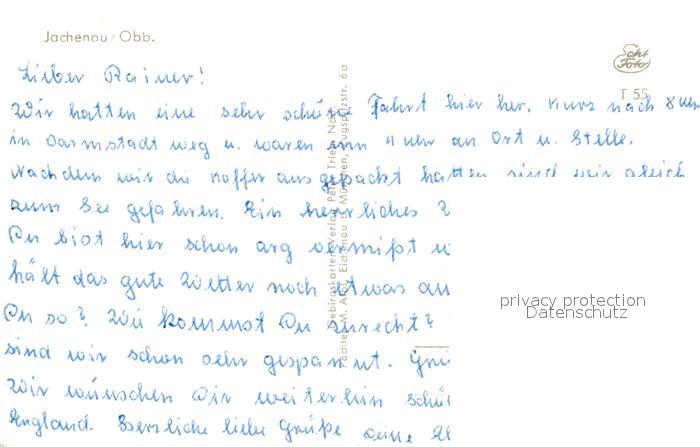 Jachenau / Obb.
Echt Foto
T 55
Lieber Rainer!
Wir hatten eine sehr schöne Fahrt hier her. Kurz nach 8 Uhr
in Darmstadt weg u. waren um 4 Uhr an Ort u. Stelle.
Nachdem wir die Koffer ausgepackt hatten sind wir gleich
zum See gefahren. Ein herrliches
Du bist hier schon arg vermißt
hält das gute Wetter noch etwas an
Du so? Wie kommst Du zurecht?
sind wir schon sehr gespannt.
Wir wünschen Dir weiterhin
England. Herzliche liebe Grüße Deine
Gebirgskarten-Verlag Peter Trier Nachf.
Pächter M. Eichenau b. München, Zugspitzstr. 6a
privacy protection
Datenschutz